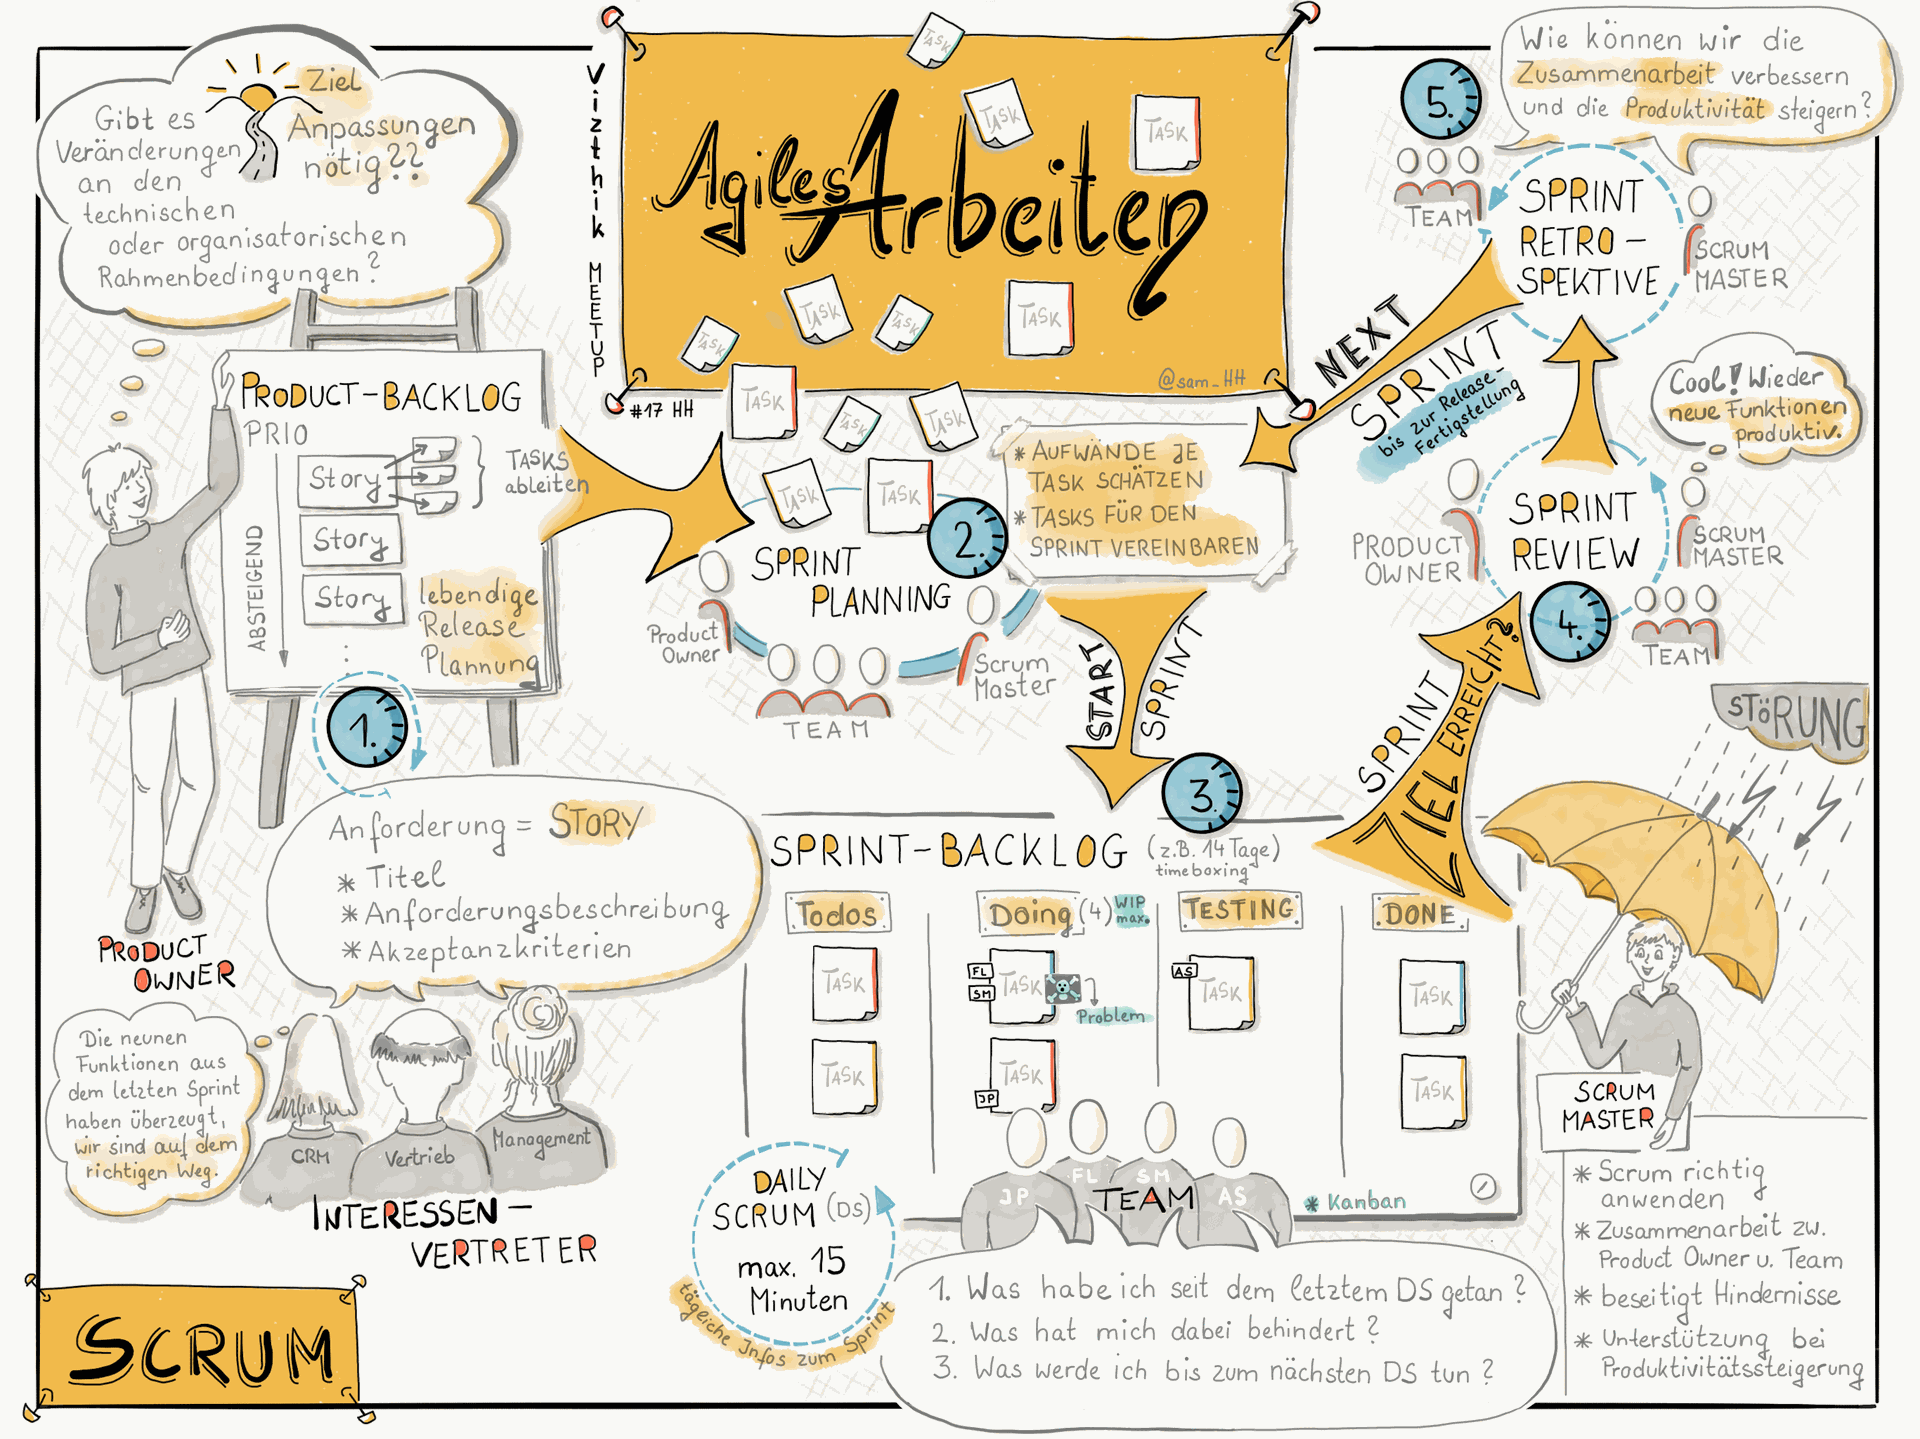 Ziel
Gibt es
Veränderungen
an den
technischen
oder organisatorischen
Rahmenbedingungen?
Anpassungen
nötig??
Vizthik MEETUP
#17 HH
Agiles Arbeiten
TASK
TASK
TASK
TASK
TASK
TASK
TASK
@sam_HH
TASK
TASK
TASK
TASK
TASK
PRODUCT-BACKLOG
PRIO
ABSTEIGEND
Story
Story
Story
TASKS
ableiten
lebendige
Release
Plannung
1.
PRODUCT
OWNER
Anforderung = STORY
* Titel
* Anforderungsbeschreibung
* Akzeptanzkriterien
Die neunen
Funktionen aus
dem letzten Sprint
haben überzeugt,
wir sind auf dem
richtigen Weg.
CRM
Vertrieb
Management
INTERESSEN-
VERTRETER
SCRUM
2.
SPRINT
PLANNING
Product
Owner
TEAM
Scrum
Master
* AUFWÄNDE JE
TASK SCHÄTZEN
* TASKS FÜR DEN
SPRINT VEREINBAREN
START
SPRINT
3.
SPRINT-BACKLOG
(z.B. 14 Tage)
timeboxing
Todos
Doing (4) WIP
max.
TESTING
DONE
TASK
TASK
FL
SM
TASK
Problem
JP
TASK
AS
TASK
TASK
TASK
JP
FL
SM
AS
TEAM
* Kanban
DAILY
SCRUM (DS)
max. 15
Minuten
tägliche Infos zum Sprint
1. Was habe ich seit dem letztem DS getan?
2. Was hat mich dabei behindert?
3. Was werde ich bis zum nächsten DS tun?
SPRINT
ZIEL ERREICHT?
4.
SPRINT
REVIEW
PRODUCT
OWNER
SCRUM
MASTER
TEAM
Cool! Wieder
neue Funktionen
produktiv.
5.
SPRINT
RETRO-
SPEKTIVE
TEAM
SCRUM
MASTER
Wie können wir die
Zusammenarbeit verbessern
und die Produktivität steigern?
NEXT
SPRINT
bis zur Release-
Fertigstellung
STÖRUNG
SCRUM
MASTER
* Scrum richtig
anwenden
* Zusammenarbeit zw.
Product Owner u. Team
* beseitigt Hindernisse
* Unterstützung bei
Produktivitätssteigerung